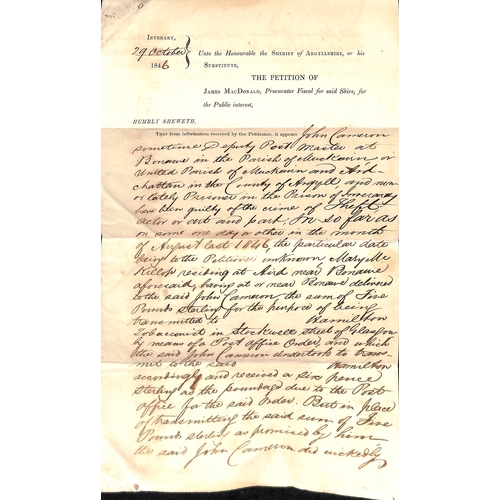 INVERARY,
29 October
1846
Unto the Honourable the SHERIFF of ARGYLLSHIRE, or his
SUBSTITUTE,
THE PETITION OF
JAMES MACDONALD, Procurator Fiscal for said Shire, for
the Public interest,
HUMBLY SHEWETH,
THAT from information received by the Petitioner, it appears John Cameron
sometime Deputy Post Master at
Bonawe in the Parish of Muckairn or
United Parish of Muckairn and Ard-
chattan in the County of Argyll and now
or lately Prisoner in the Prison of Inverary
has been guilty of the crime of Theft
actor or art and part, In so far as
on some one day or other in the month
of August last 1846, the particular date
being to the Petitioner unknown Mary Mc
Killop residing at Aird near Bonawe
aforesaid, having at or near Bonawe delivered
to the said John Cameron the sum of Five
Pounds sterling for the purpose of being
transmitted to Hamilton
Tobacconist in Stockwell street of Glasgow
by means of a Post office Order, and which
the said John Cameron undertook to trans-
mit to the said Hamilton
accordingly and received a six pence
sterling as the poundage due to the Post
office for the said order. But in place
of transmitting the said sum of Five
Pounds sterling as promised by him
the said John Cameron did wickedly